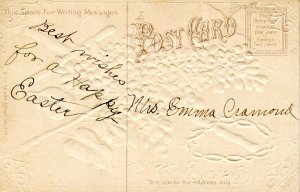 This Space For Writing Messages
POST CARD
Best wishes
for a Happy
Easter
Mrs. Emma Cramond
This side for Address only